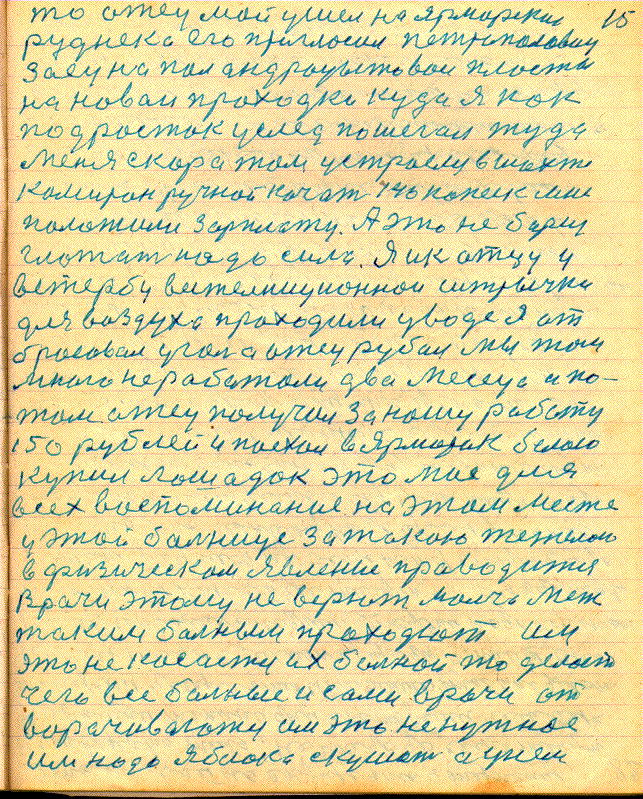 то отец мой ушел на ярмарский 15
рудника его пригласил петриполовиц
Засунапол андроцытовой плоста
на новаи проходки куда я как
подросток услед пошегал туда
меня скора там устроели в шахте
камирон ручной качат 1 40 копеек мне
положили зарплату. А это не барщ
глотат надо сила. Я ик отцу у
ветербу вителяционной штрычки
для воздуха проходили уводе я от
бросовал угол а отец рубал мы там
много не работали два месеца и по-
том отец получил за нашу работу
150 рублей и поехал в Ярмолик белою
купил лошадок это мое для
всех воспоминание на этом месте
у этой болнице за такою тежолою
в физическом явление праводится
врачи этому не верют молчь меж
таким болным проходют им
это не касаетц их болной то делает
чего все болные и сами врачи от
ворачиваютц им это не нужное
им надо яблока скушат а унем